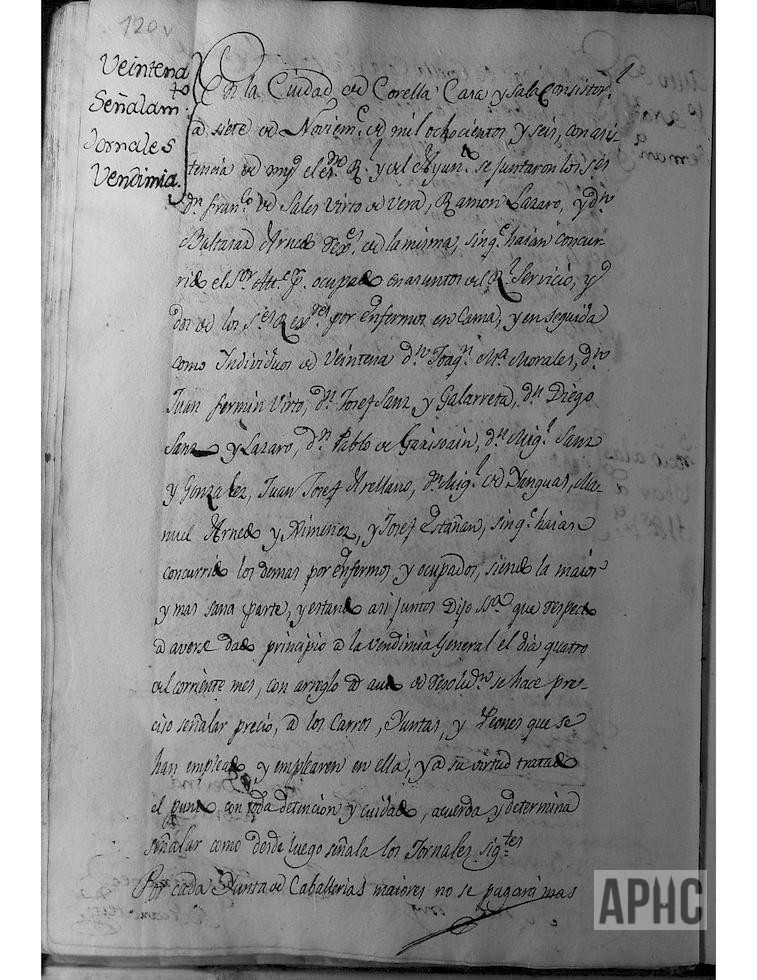 120v
Veintena
Señalam.to
Jornales
Vendimia.
En la Ciudad de Corella Casa y sala Consistor.l
a siete de Noviem.e de mil ochocientos y seis, con asis
tencia de mi el es.no R.l y del Ayun.to se juntaron los S.res
D.n Fran.co de Sales Virto de Vera, Ramon Lazaro, y d.n
Baltasar Arnedo de la misma, sin q.e haian concur
rido el S.or Alc.e ocupado en asuntos del R.l Servicio, y
dos de los S.res Rex.res por enfermos en Cama, y en seguida
como Individuos de Veintena d.n Joaq.n M.a Morales, d.n
Juan fermin Virto, d.n Josef Sanz y Galarreta, d.n Diego
Sanz y Lazaro, d.n Pablo de Garisoain, d.n Mig.l Sanz
y Gonzalez, Juan Josef Arellano, d.n Mig.l de Yanguas, Ma-
nuel Arnedo y Ximenez, y Josef Estañan, sin q.e haian
concurrido los demas por enfermos y ocupados, siendo la maior
y mas sana parte, y estando asi juntos Dijo S.Sa que respecto
a averse dado principio a la Vendimia General el dia quatro
del corriente mes, con arreglo a auto de resoluc.n se hace pre-
ciso señalar precio, a los Carros, Yuntas, y Peones que se
han empleado y emplearen en ella, y a su virtud tratado
el punto con toda detencion y cuidado, acuerda y determina
señalar como desde luego señala los Jornales sig.tes
Por cada Yunta de Caballerias maiores no se pagara mas
APHC